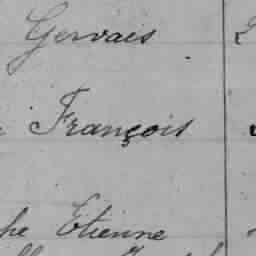 Gervais
François
he Etienne